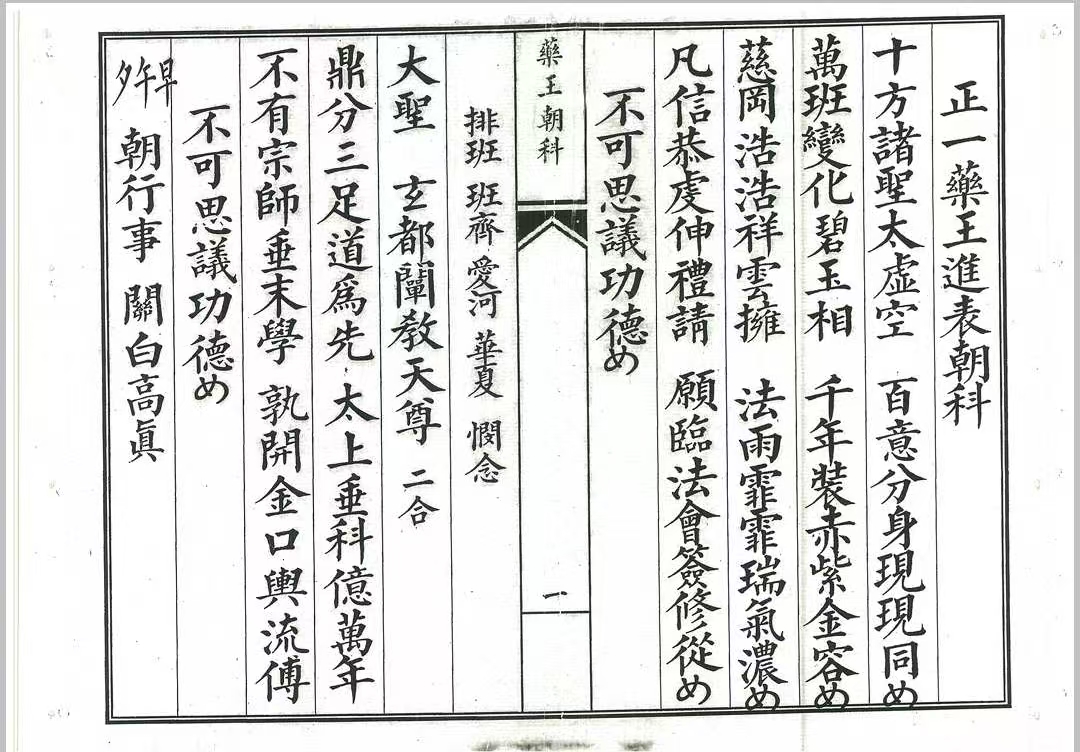 正一藥王進表朝科
十方諸聖太虛空　百意分身現現同め
萬班變化碧玉相　千年裝赤紫金容め
慈岡浩浩祥雲擁　法雨霏霏瑞氣濃め
凡信恭虔伸禮請　願臨法會簽修從め
不可思議功德め
藥王朝科
一
排班　班齊　愛河　華夏　憫念
大聖　玄都闡教天尊　二合
鼎分三足道爲先　太上垂科億萬年
不有宗師垂末學　孰開金口輿流傅
不可思議功德め
早午夕　朝行事　關白高眞